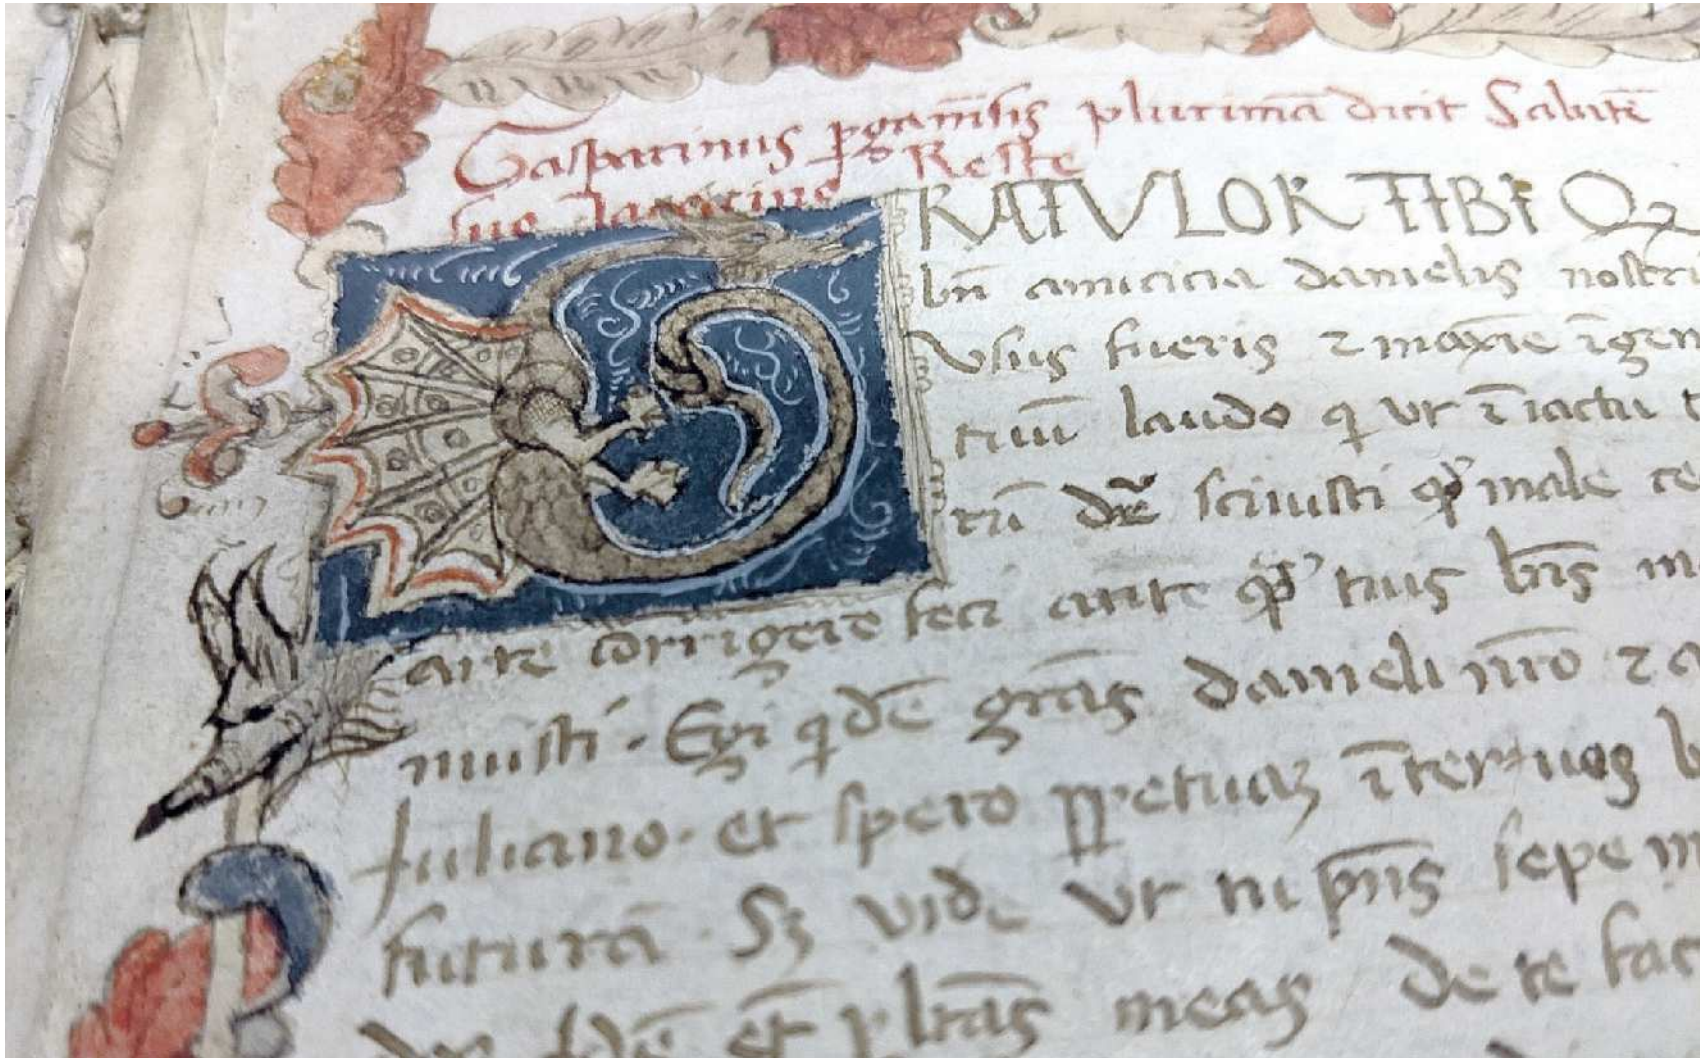 Gasparinus p̱gam̄sis plurimā dicit Salutē
suo Reste
RATVLOR TIBI Q
bn̄ amicicia danielis nostri
Vsus fueris ⁊ maxīe īgen
tiuū laudo qͥ vt ī iactu t
rū sciuisti ꝙ male ce
arte corrīgere feci ante ꝙ̄ tuus bn̄s
muisti · Egi qͥdē grās danieli nr̄o ⁊ a
Juliano · et spero ꝑpetuaꝫ īter uos b
futurā · Sꝫ vide vt tu pn̄s sepe m
et lrās meas de te fac